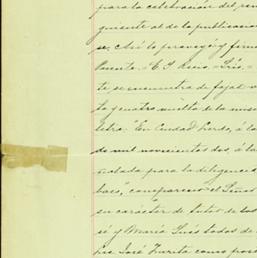 para la celebración del rem
guiente al de la publicacion
se. Así lo proveyó y firmó
Puente.
te se encuentra de fojas
ta y cuatro vuelta de la misma
letra: "En Ciudad Lerdo, á la
de mil novecientos dos á la
ñalada para la diligencia
baca, comparecieron el Señor
en carácter de tutor de los
sé y María Luis
José Zurita como